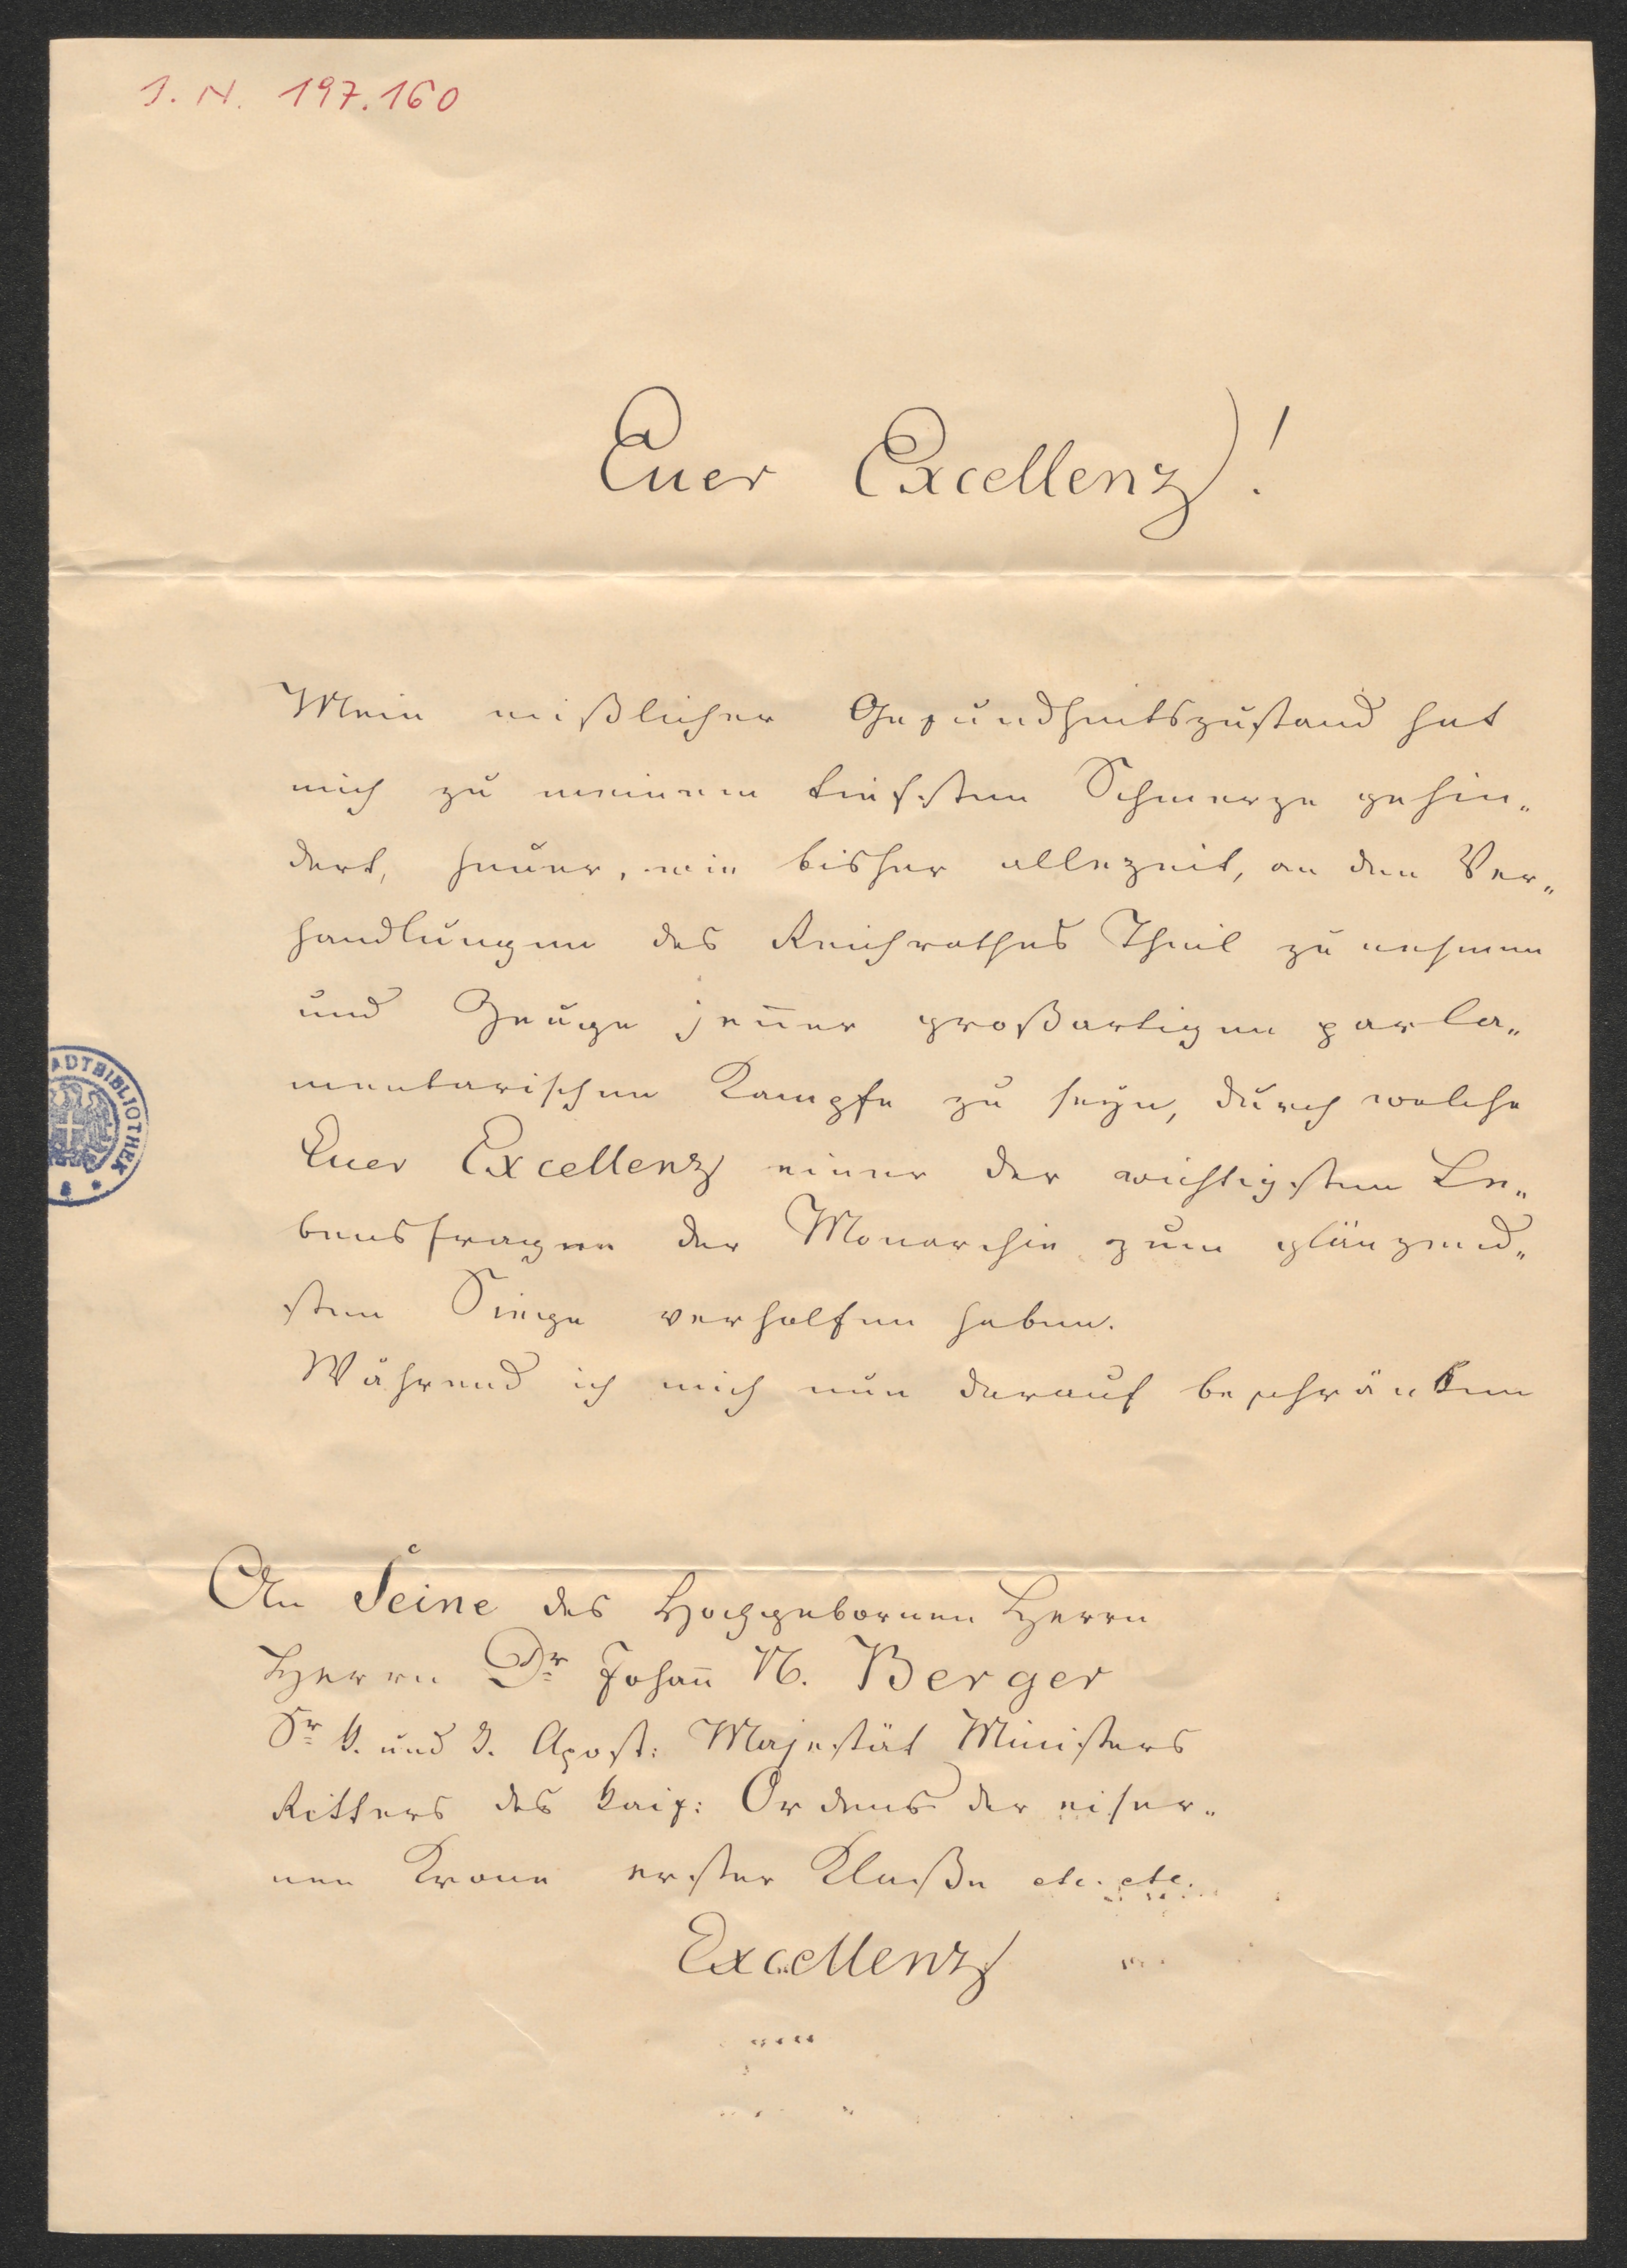 I. N. 197.160
Euer Excellenz!
Mein mißlicher Gesundheitszustand hat
mich zu meinem tiefsten Schmerze gehin„
dert, heuer, wie bisher allezeit, an den Ver„
handlungen des Reichrathes Theil zu nehmen
und Zeuge jener großartigen parla„
mentarischen Kampfe zu seyn, durch welche
Euer Excellenz einer der wichtigsten Le„
bensfragen der Monarchie zum glänzend„
sten Siege verholfen haben.
Während ich mich nun darauf beschränken
An Seine des Hochgebornen Herrn
Herrn Dr Johan̅ N. Berger
Sr k. und k. Apost: Majestät Ministers
Ritters des kais: Ordens der eiser„
nen Krone erster Klaße etc. etc.
Excellenz
ADTBIBLIOTHEK